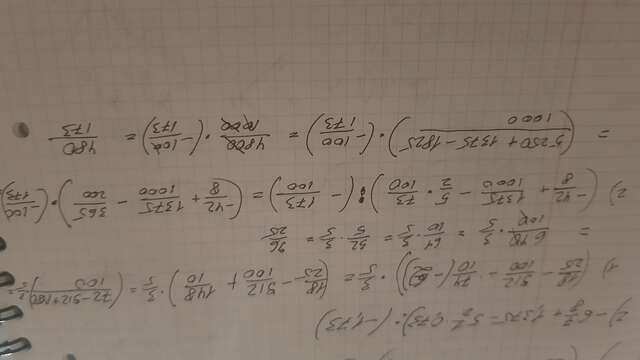 2) (-6\frac{2}{8} + 1,375 - 5\frac{1}{2} \cdot 0,73) : (-1,73)
1) (\frac{18}{25} - \frac{912}{100} - \frac{74}{10}(-2)) \cdot \frac{3}{5} = (\frac{18}{25} - \frac{912}{100} + \frac{148}{10}) \cdot \frac{3}{5} = (\frac{72-912+1480}{100}) \cdot \frac{3}{5} =
= \frac{640}{100} \cdot \frac{3}{5} = \frac{64}{10} \cdot \frac{3}{5} = \frac{32}{5} \cdot \frac{3}{5} = \frac{96}{25}
2) (-\frac{42}{8} + \frac{1375}{1000} - \frac{5}{2} \cdot \frac{73}{100}) : (-\frac{173}{100}) = (-\frac{42}{8} + \frac{1375}{1000} - \frac{365}{200}) \cdot (-\frac{100}{173})
= (\frac{5250 + 1375 - 1825}{1000}) \cdot (-\frac{100}{173}) = \frac{4800}{1000} \cdot (-\frac{100}{173}) = \frac{480}{173}